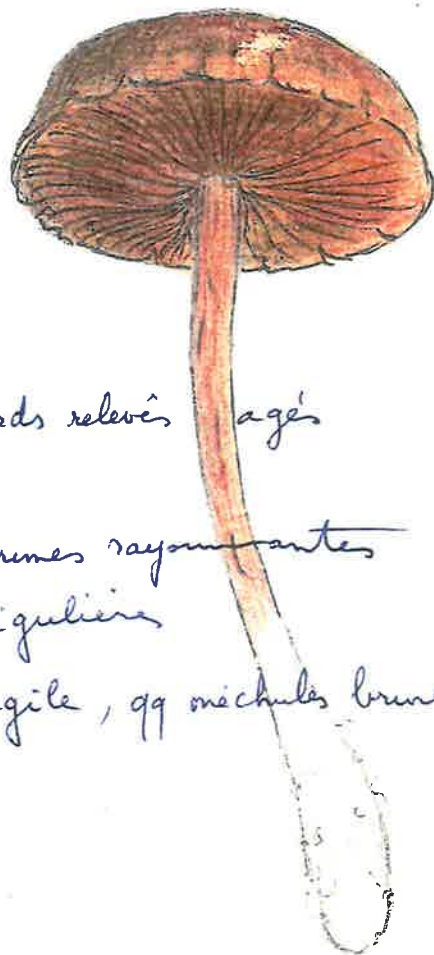 ds relevés agés
rimes rayonnantes
égulières
gile, qq méchules brun